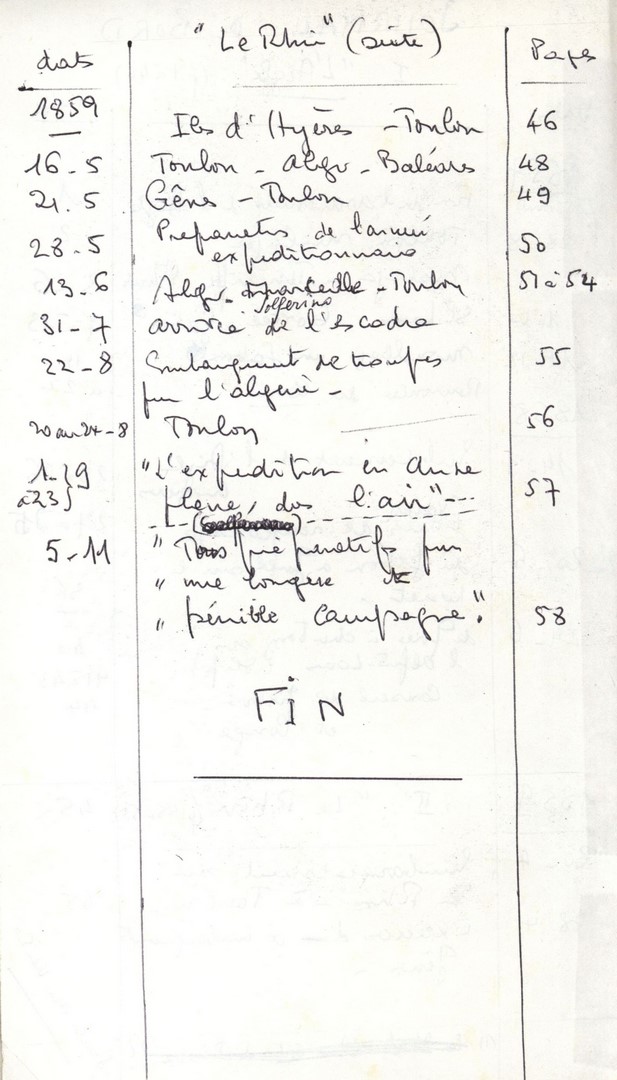 dats "Le Rhin" (suite) Pages
1859 Iles d'Hyères - Toulon 46
16-5 Toulon - Alger - Baléares 48
21.5 Gênes - Toulon 49
28.5 Preparatifs de l'armée
expeditionnaire 50
13-6 Alger - Marseille - Toulon 51 à 54
Solferino
31-7 arrivée de l'escadre
22-8 Embarquement de troupes 55
pour l'algerie -
20 au 24-8 Toulon 56
1- } 9 "L'expedition en Chine
à 23 plane, dans l'air" --- 57
5-11 " Tous preparatifs pour
" une longue
" pénible campagne". 58
FiN